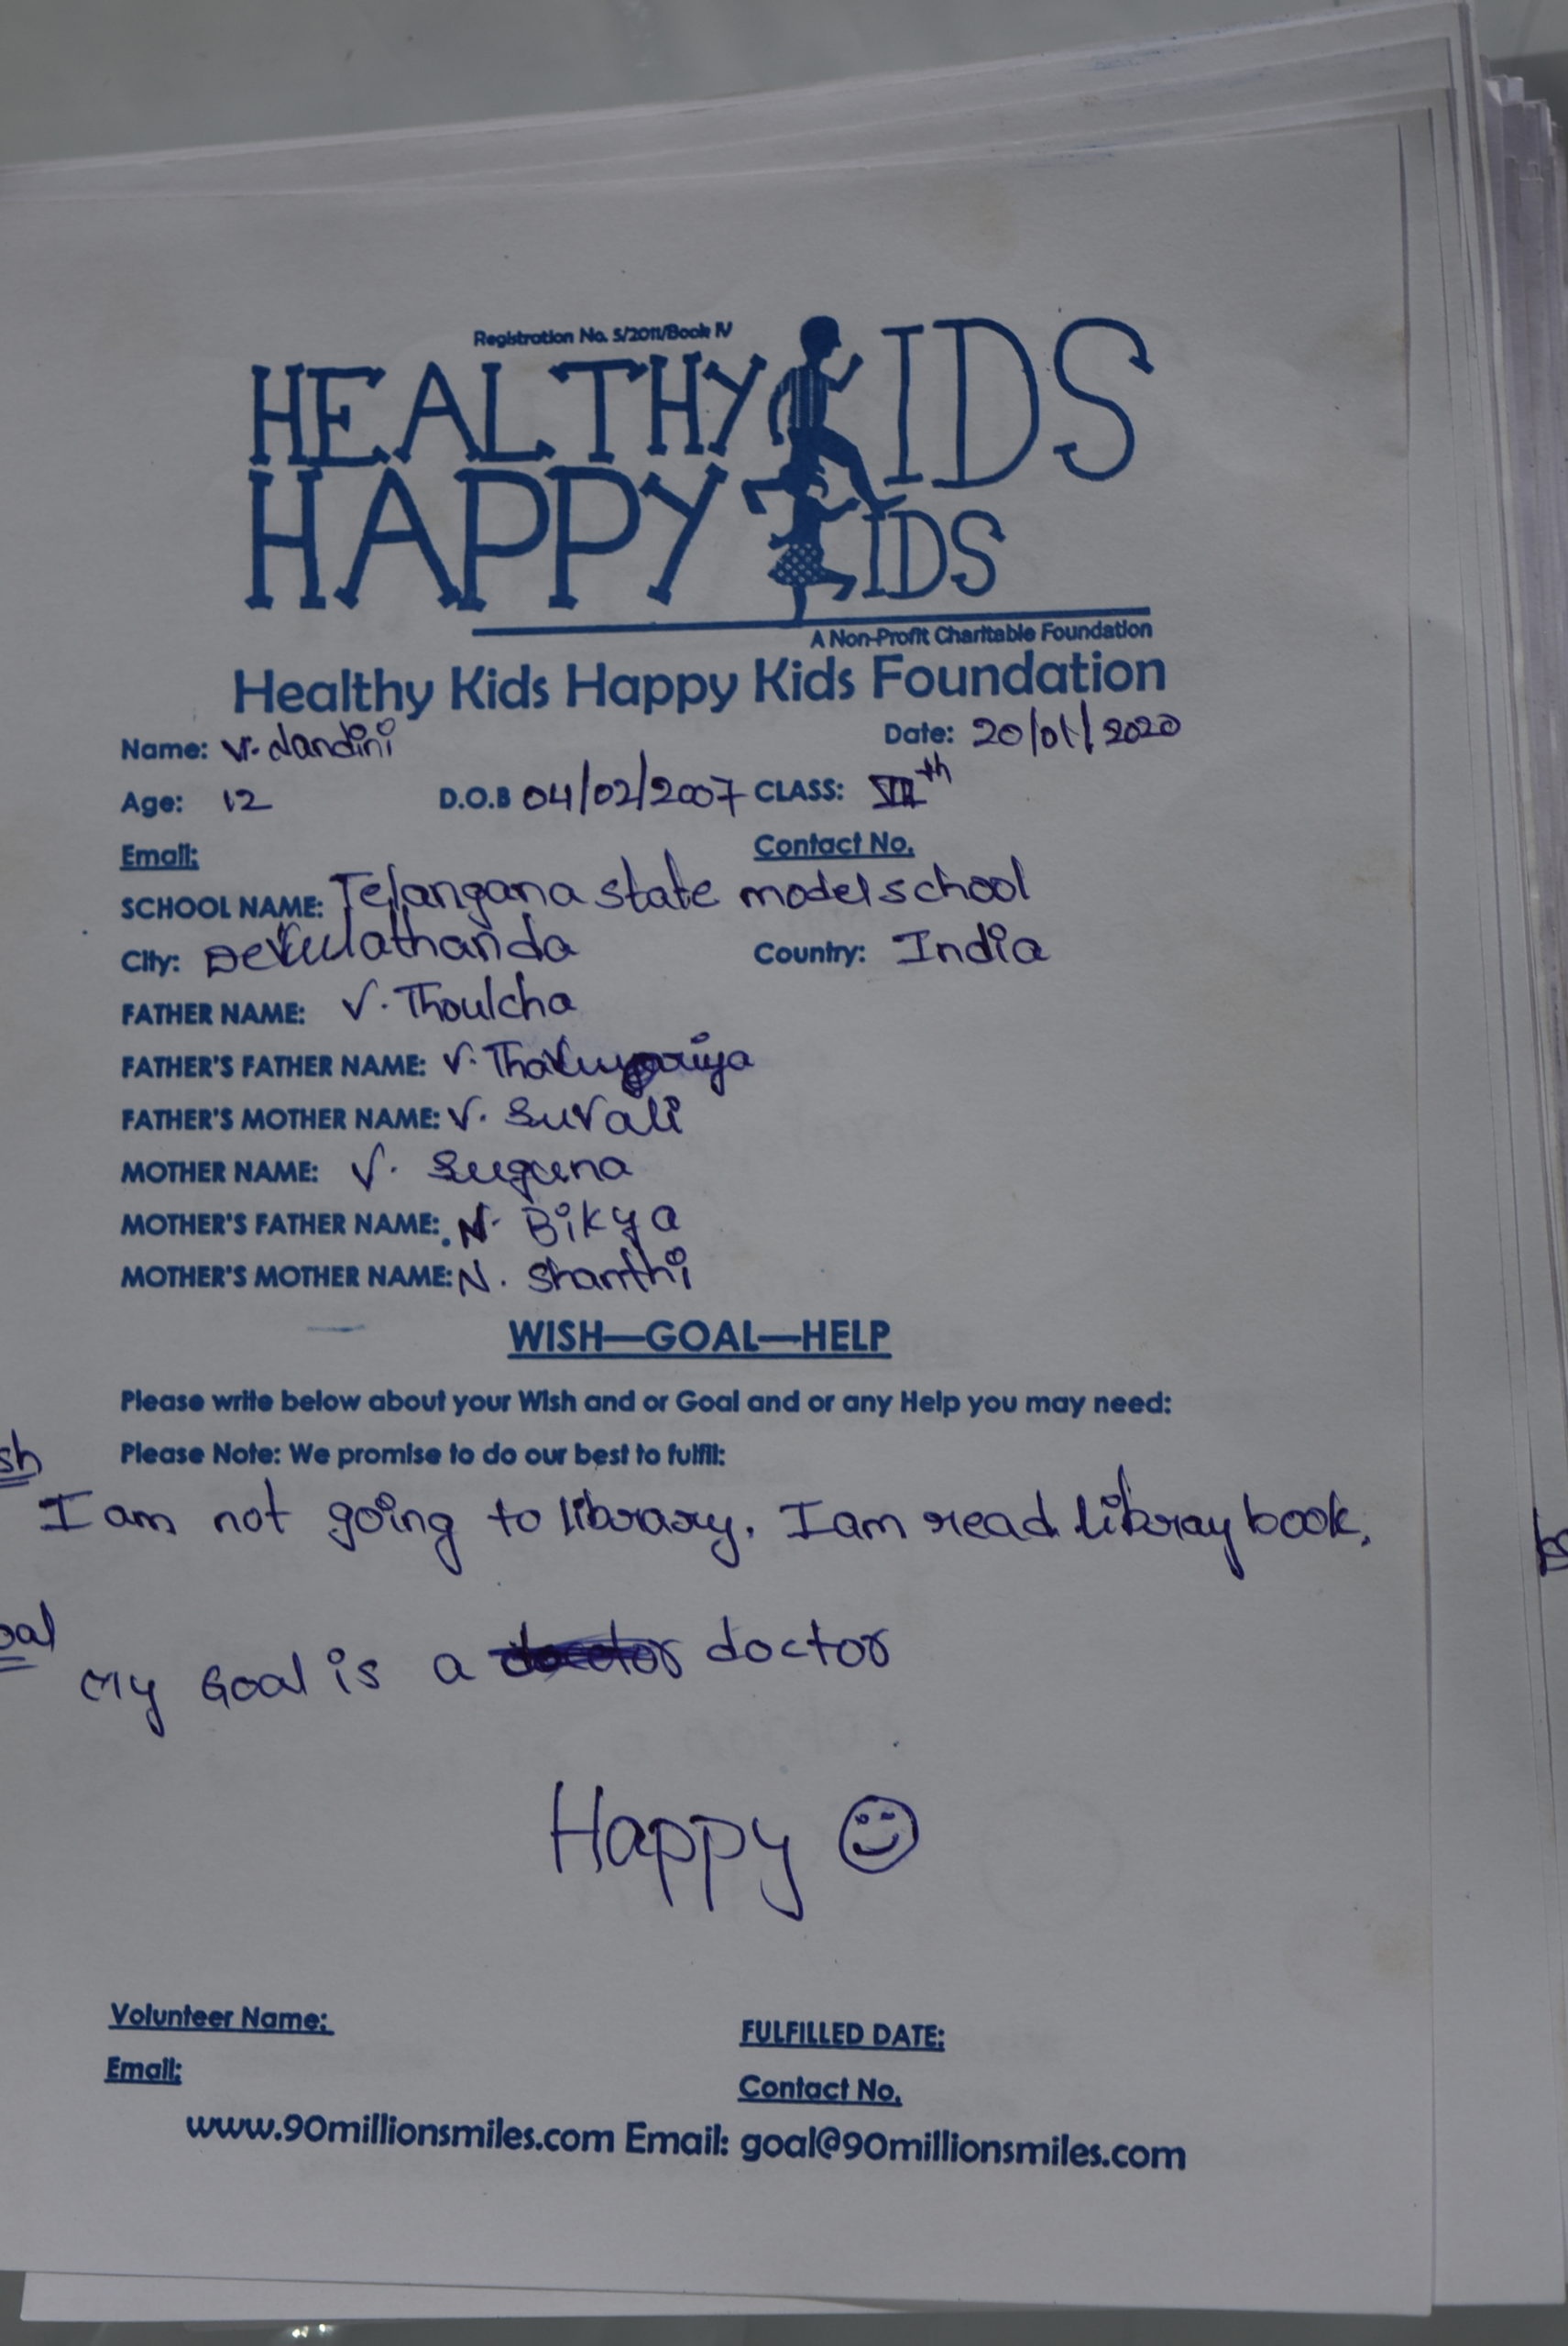 Registration No. 5/2011/Book IV
HEALTHY KIDS
HAPPY KIDS
A Non-Profit Charitable Foundation
Healthy Kids Happy Kids Foundation
Name: V. Nandini Date: 20/01/2020
Age: 12 D.O.B 04/02/2007 CLASS: VII th
Email: Contact No.
SCHOOL NAME: Telangana state model school
City: Devulathanda Country: India
FATHER NAME: V. Thoulcha
FATHER'S FATHER NAME: V.
FATHER'S MOTHER NAME: V. Suvali
MOTHER NAME: V. Suguna
MOTHER'S FATHER NAME: N. Bikya
MOTHER'S MOTHER NAME: N. Shanthi
WISH—GOAL—HELP
Please write below about your Wish and or Goal and or any Help you may need:
Please Note: We promise to do our best to fulfil:
sh
I am not going to library. I am read libray book.
oal
My Goal is a doctor
Happy
Volunteer Name: FULFILLED DATE:
Email: Contact No.
www.90millionsmiles.com Email: goal@90millionsmiles.com